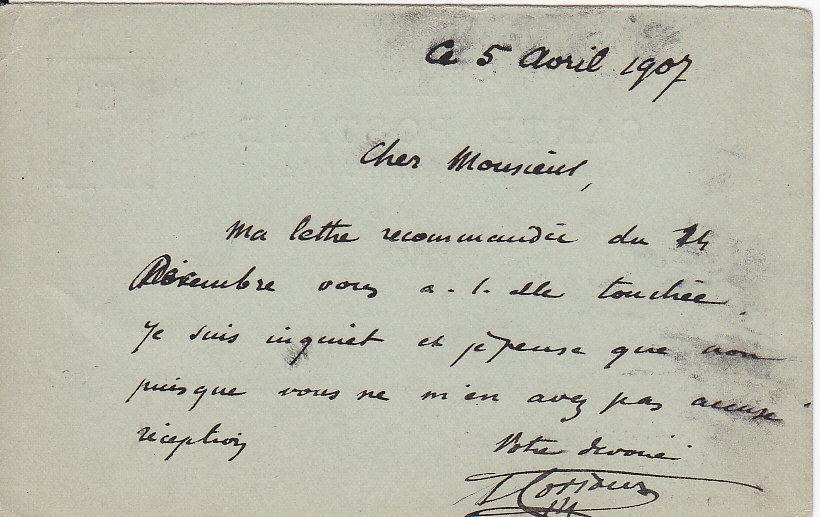 Ce 5 Avril 1907
Cher Monsieur,
Ma lettre recommandée du 24
Décembre vous a-t-elle touchée,
Je suis inquiet et je pense que non
puisque vous ne m'en avez pas accusé
réception
Votre dévoué